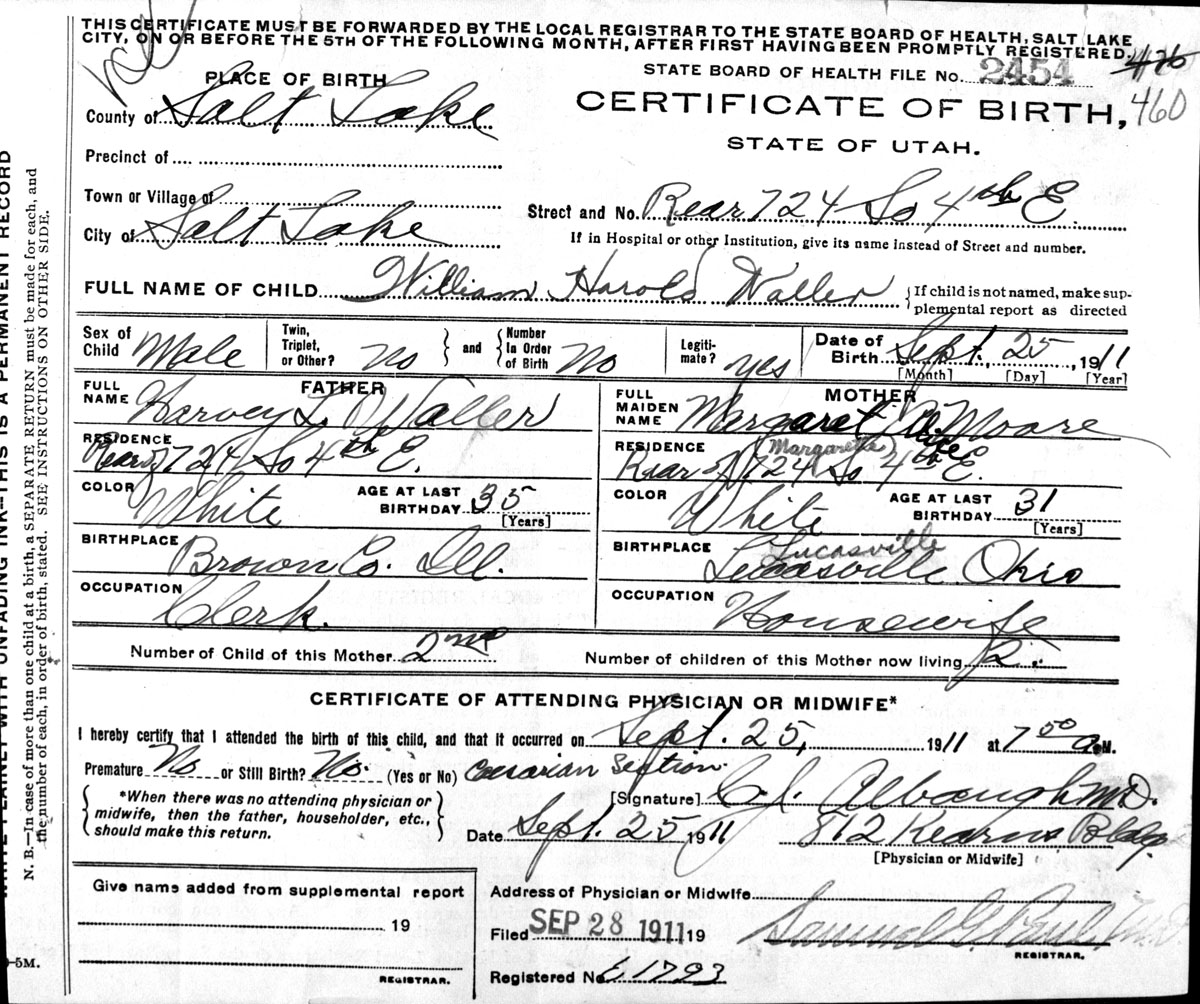 THIS CERTIFICATE MUST BE FORWARDED BY THE LOCAL REGISTRAR TO THE STATE BOARD OF HEALTH, SALT LAKE
CITY, ON OR BEFORE THE 5TH OF THE FOLLOWING MONTH, AFTER FIRST HAVING BEEN PROMPTLY REGISTERED.
STATE BOARD OF HEALTH FILE No. 2454
PLACE OF BIRTH
CERTIFICATE OF BIRTH, 460
County of Salt Lake
STATE OF UTAH.
Precinct of
Town or Village of
Street and No. Rear 724 So 4th E.
City of Salt Lake
If in Hospital or other Institution, give its name instead of Street and number.
FULL NAME OF CHILD William Harold Waller {If child is not named, make sup-
plemental report as directed
Sex of Child Male Twin, Triplet, or Other? No } and { Number In Order of Birth No Legiti-mate? yes Date of Birth Sept. 25, 1911
[Month] [Day] [Year]
FATHER
FULL NAME Harvey L. Waller
MOTHER
FULL MAIDEN NAME Margaret Moore
(Margarette)
RESIDENCE Rear of 724 So 4th E.
RESIDENCE Rear of 724 So 4th E.
COLOR White AGE AT LAST BIRTHDAY 35
[Years]
COLOR White AGE AT LAST BIRTHDAY 31
[Years]
BIRTHPLACE Brown Co. Ill.
Lucasville
BIRTHPLACE Lucasville Ohio
OCCUPATION Clerk.
OCCUPATION Housewife
Number of Child of this Mother 2nd
Number of children of this Mother now living 2.
CERTIFICATE OF ATTENDING PHYSICIAN OR MIDWIFE*
I hereby certify that I attended the birth of this child, and that it occurred on Sept. 25, 1911 at 7 50 a.M.
Premature No or Still Birth? No. (Yes or No) Caesarian Section.
{ *When there was no attending physician or
midwife, then the father, householder, etc.,
should make this return. }
[Signature] C. J. Albaugh M.D.
Date Sept. 25 1911 812 Kearns Bldg.
[Physician or Midwife]
Give name added from supplemental report
19
REGISTRAR.
Address of Physician or Midwife
Filed SEP 28 1911 19 Samuel G. Paul, M.D.
REGISTRAR.
Registered No. 1793
WRITE PLAINLY WITH UNFADING INK—THIS IS A PERMANENT RECORD
N. B.—In case of more than one child at a birth, a SEPARATE RETURN must be made for each, and
the number of each, in order of birth, stated. SEE INSTRUCTIONS ON OTHER SIDE.
-5M.